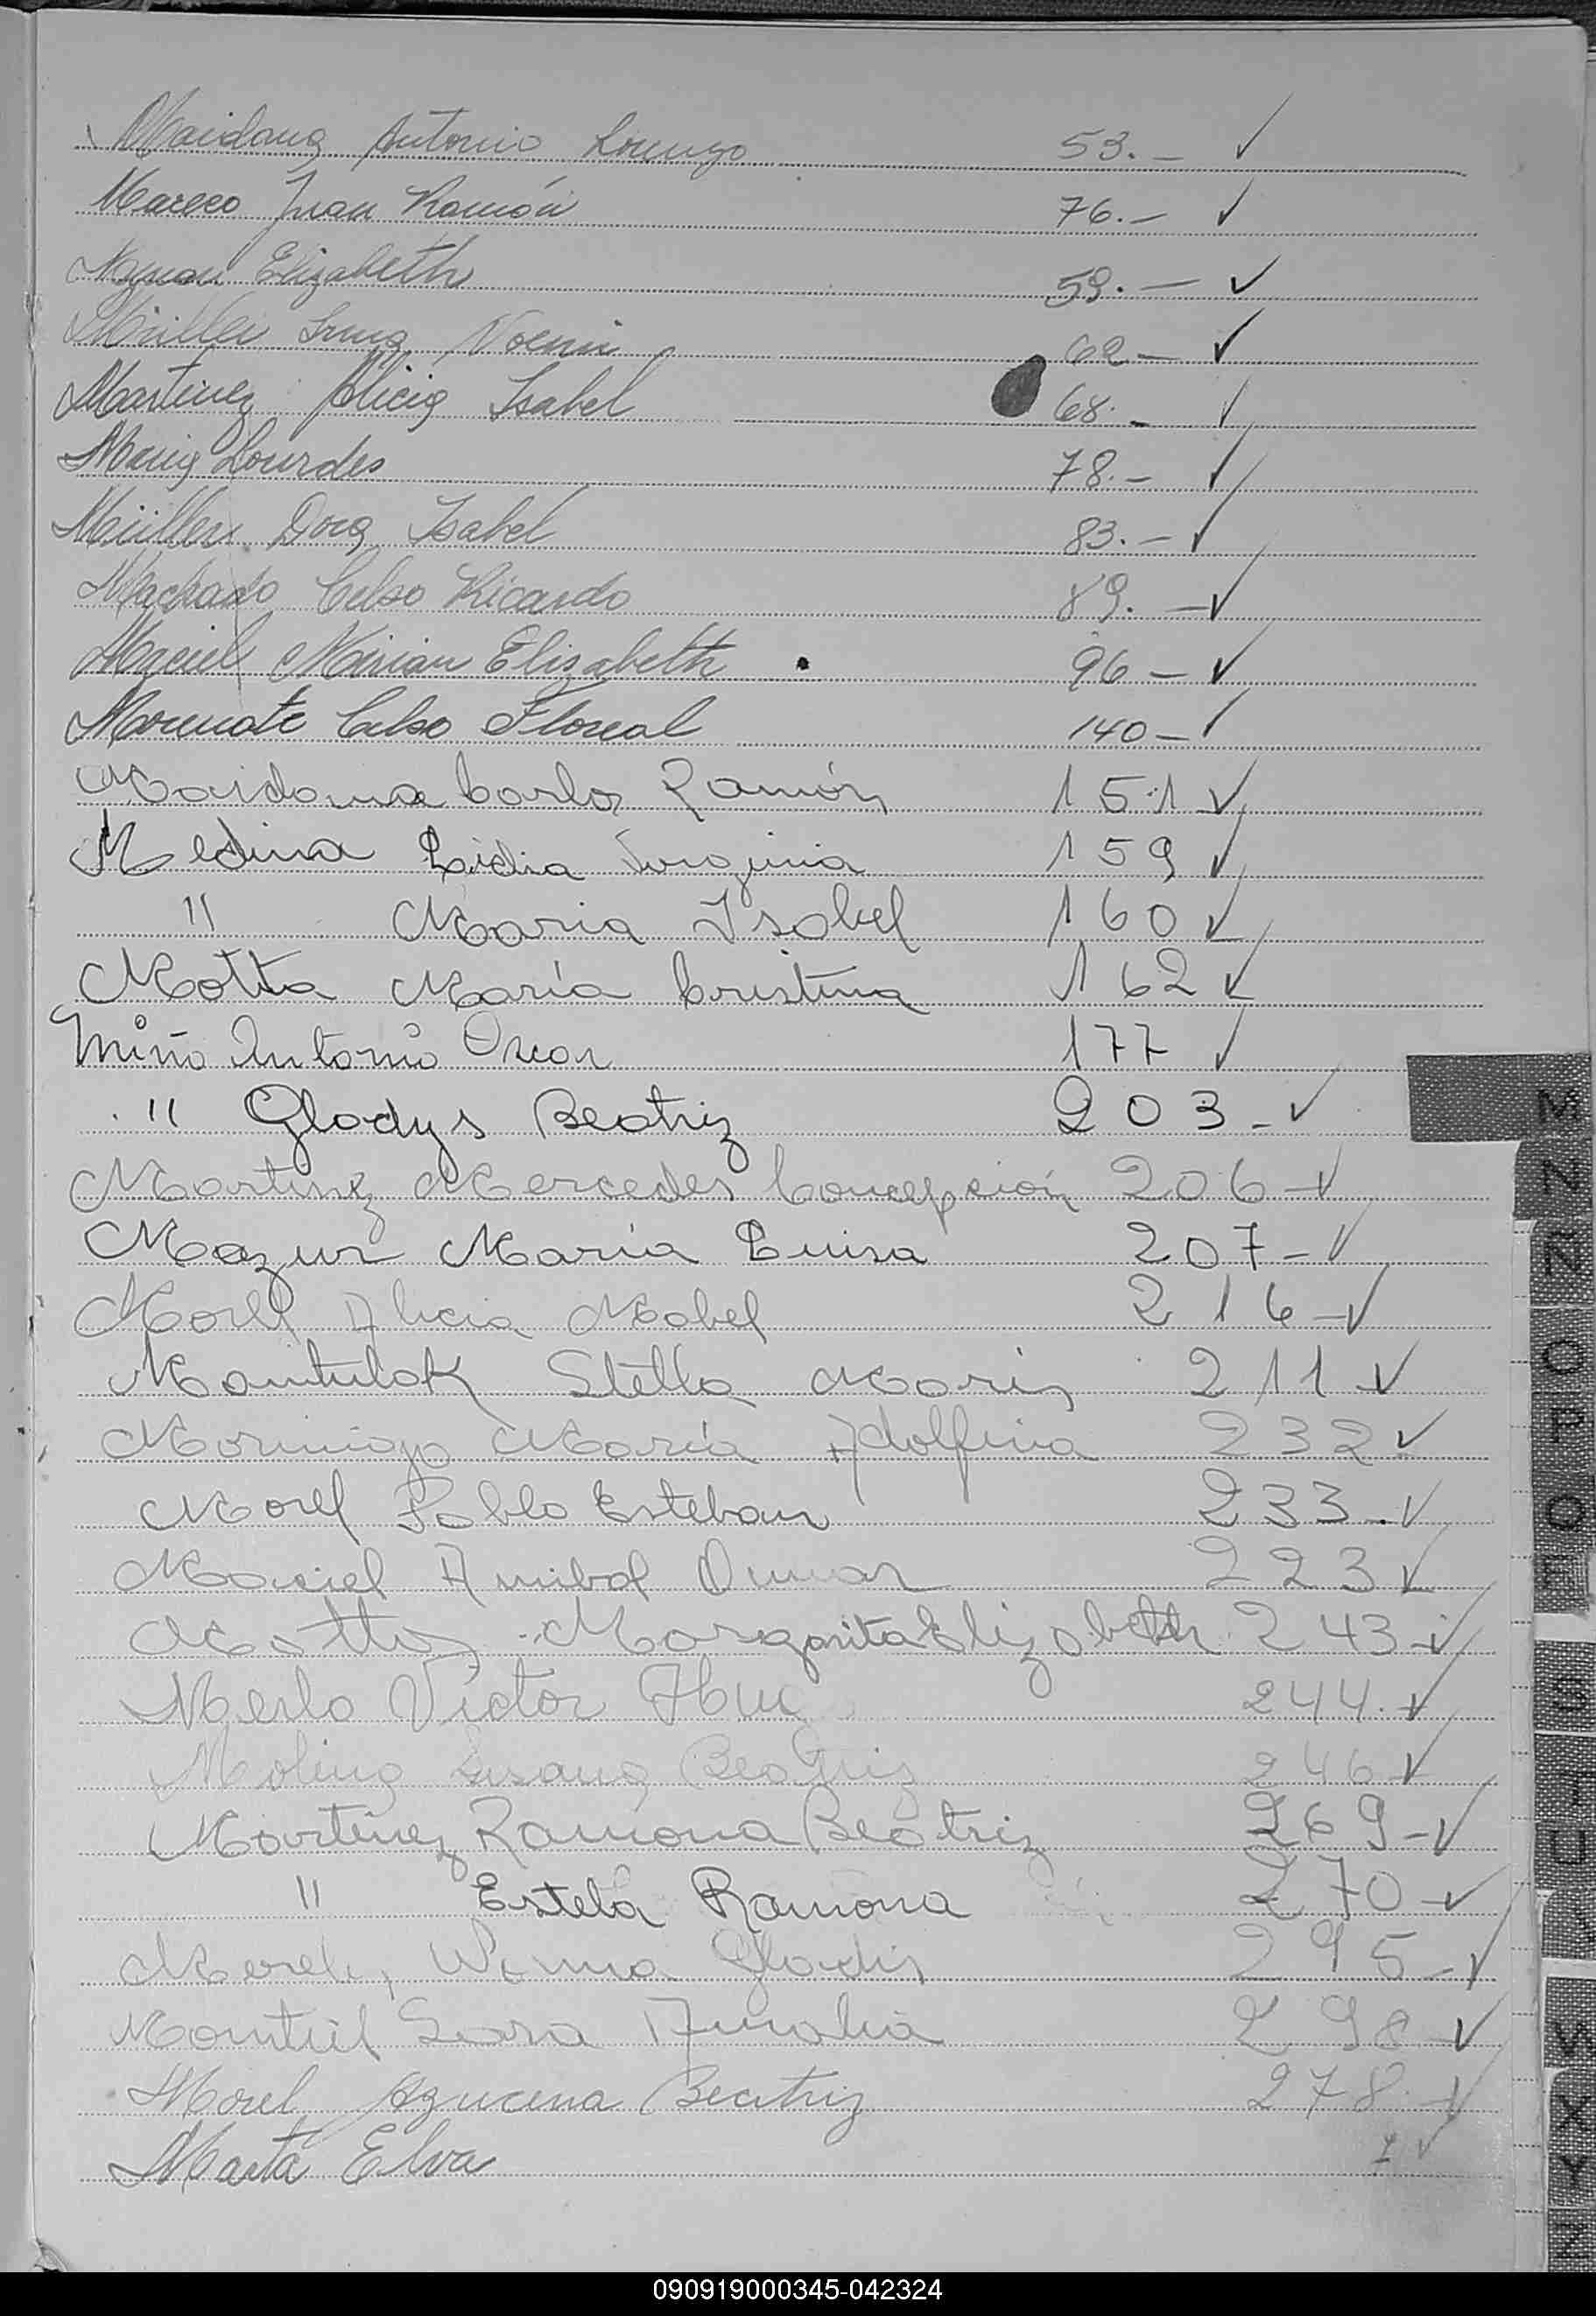 Maidana Antonio Lorenzo 53.- ✓
Mareco Juan Ramón 76.- ✓
Elizabeth 59.- ✓
Müller Irma Noemi 62- ✓
Martinez Alicia Isabel 68.- ✓
Maria Lourdes 78.- ✓
Müller Dora Isabel 83.- ✓
Machado Celso Ricardo 89.- ✓
Maciel Mirian Elizabeth 96- ✓
Celso Floreal 140- ✓
Maidana Carlos Ramón 151 ✓
Medina Lidia Virginia 159 ✓
" Maria Isabel 160 ✓
Motta María Cristina 162 ✓
Miño Antonio Oscar 177 ✓
" Gladys Beatriz 203- ✓
Martinez Mercedes Concepción 206- ✓
Mazur María Luisa 207- ✓
Morel Alicia Mabel 216- ✓
Mantulak Stella Maris 211 ✓
Morinigo María Adolfina 232 ✓
Morel Pablo Esteban 233- ✓
Maciel Anibal Omar 223 ✓
Mattos Margarita Elizabeth 243- ✓
Merlo Victor 244. ✓
Molina Susana Beatriz 246 ✓
Martinez Ramona Beatriz 269- ✓
" Estela Ramona 270- ✓
Gladis 295- ✓
Montiel Sara Amalia 298- ✓
Morel Azucena Beatriz 278.- ✓
Marta Elva ✓
M
N Ñ
O P
Q
090919000345-042324